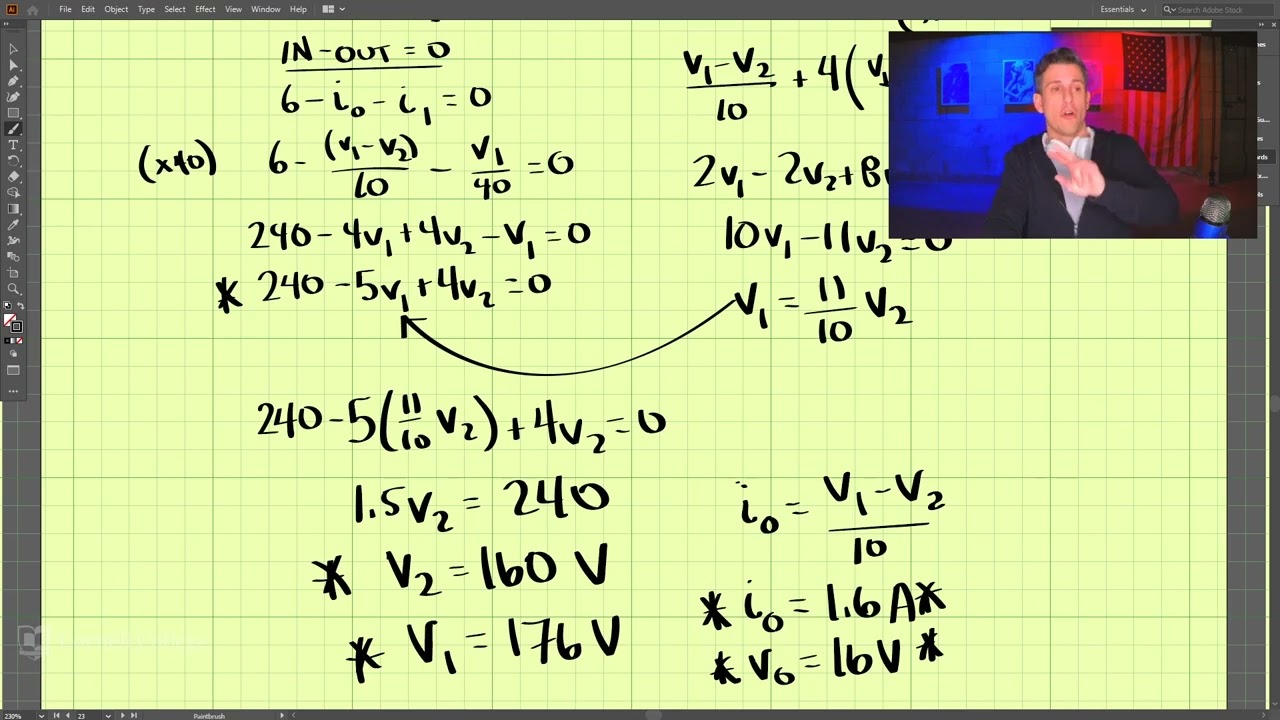 File Edit Object Type Select Effect View Window Help
Essentials
Search Adobe Stock
IN - OUT = 0
6 - i₀ - i₁ = 0
(x40) 6 - (v₁-v₂)/10 - v₁/40 = 0
240 - 4v₁ + 4v₂ - v₁ = 0
* 240 - 5v₁ + 4v₂ = 0
(v₁-v₂)/10 + 4(v₁
2v₁ - 2v₂ + 8v
10v₁ - 11v₂ = 0
v₁ = 11/10 v₂
240 - 5(11/10 v₂) + 4v₂ = 0
1.5v₂ = 240
* v₂ = 160 V
* v₁ = 176 V
i₀ = (v₁-v₂)/10
* i₀ = 1.6 A *
* v₀ = 16V *
230% 23 Paintbrush